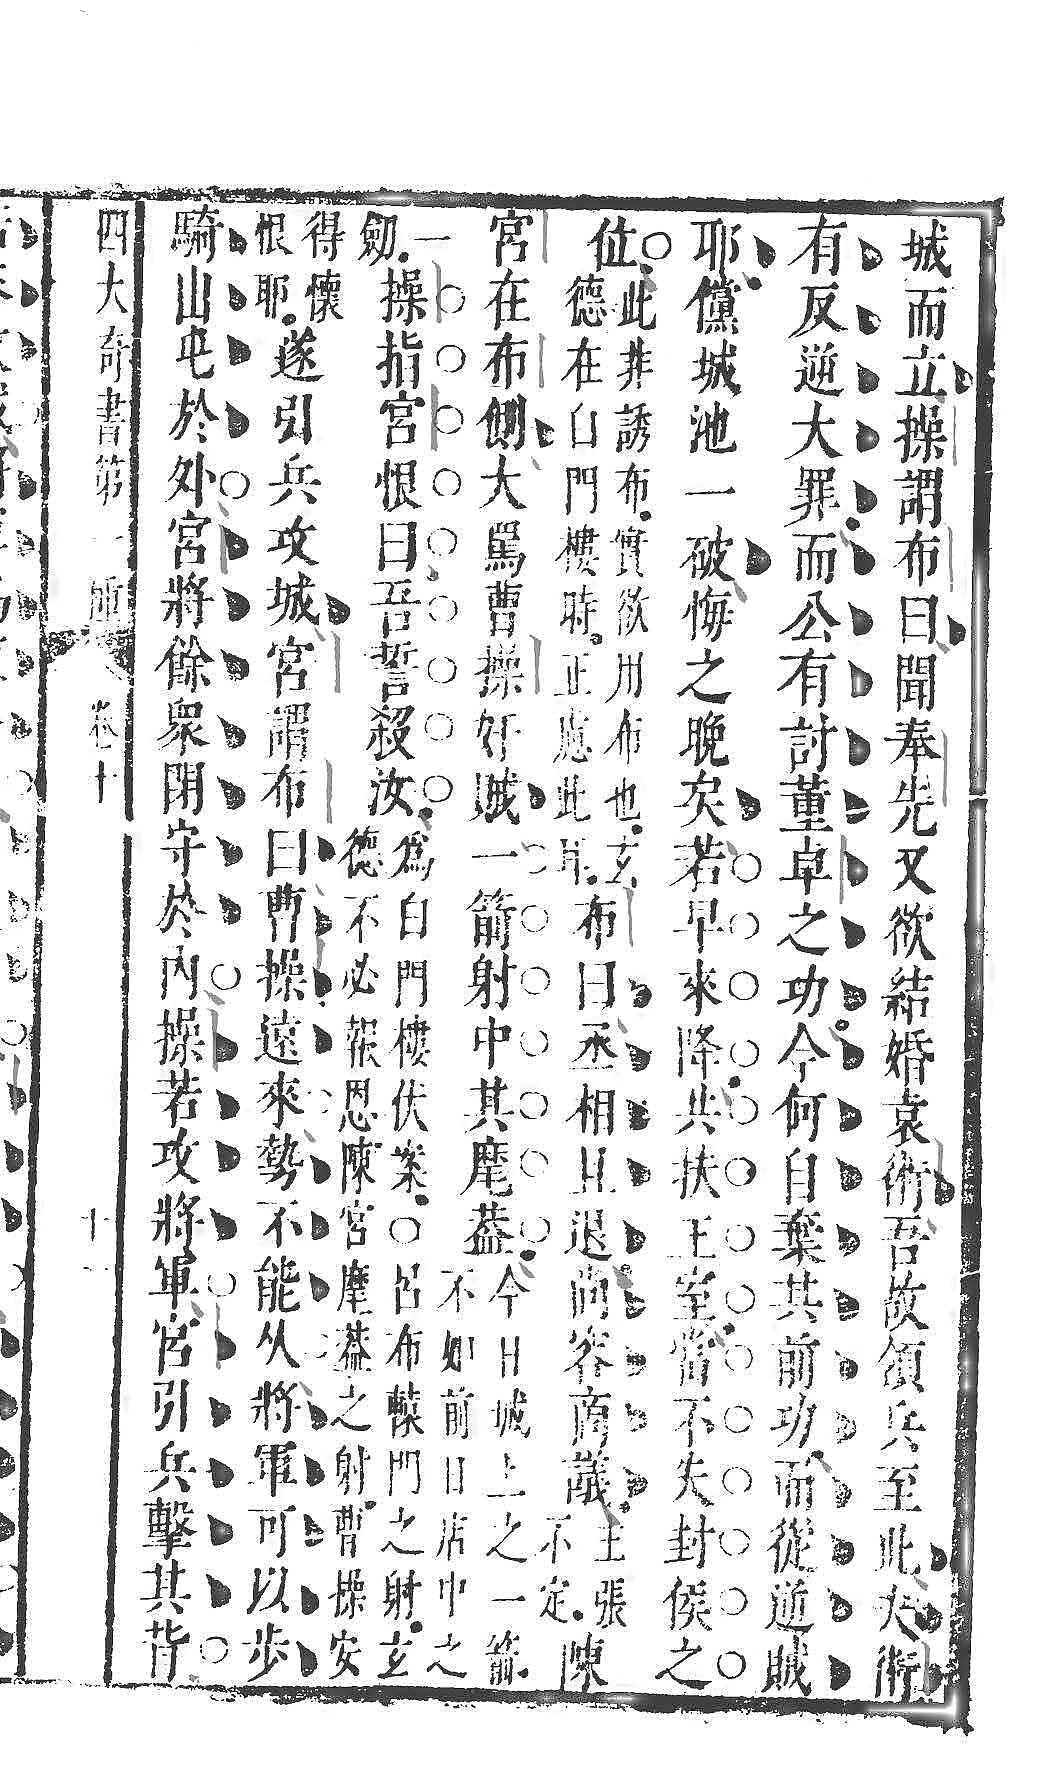 城而立操謂布曰聞奉先又欲結婚袁術吾故領兵至此夫術
有反逆大罪而公有討董卓之功今何自棄其前功而從逆賊
耶儻城池一破悔之晚矣若早來降共扶王室當不失封侯之
位此非誘布實欲用布也玄
德在白門樓時正應此耳布曰丞相且退尚容商議主張
不定陳
宮在布側大罵曹操奸賊一箭射中其麾蓋今日城上之一箭
不如前日店中之
一
劒操指宮恨曰吾誓殺汝為白門樓伏案○呂布轅門之射玄
德不必報恩陳宮麾蓋之射曹操安
得懷
恨耶遂引兵攻城宮謂布曰曹操遠來勢不能久將軍可以步
騎出屯於外宮將餘眾閉守於內操若攻將軍宮引兵擊其背
四大奇書第一種 卷十 十一